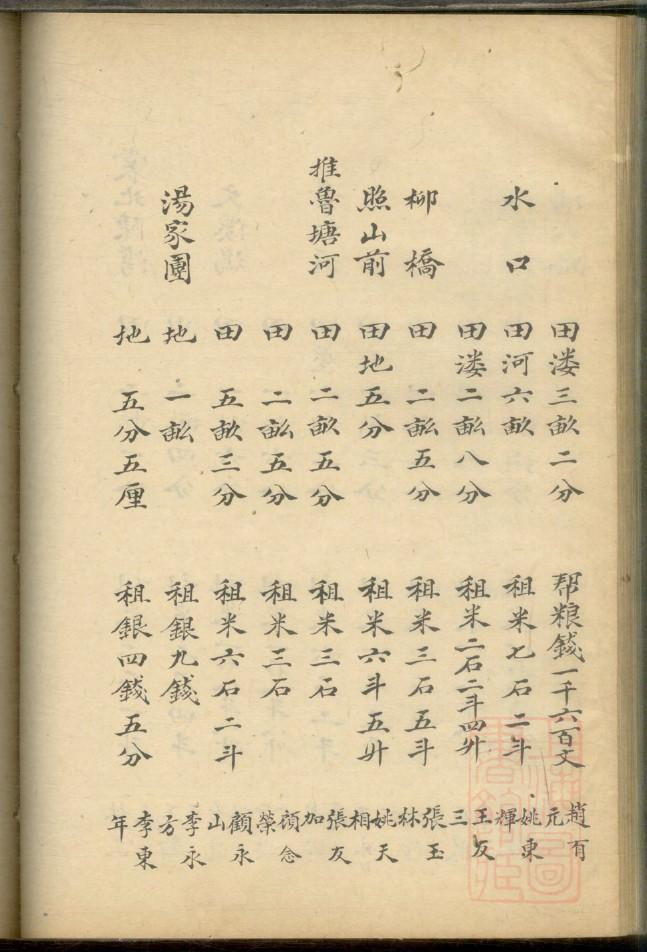 田漊三畝二分 帮粮錢一千六百文 趙有元
水口 田河六畝 租米七石二斗 姚東輝
田漊二畝八分 租米二石二斗四升 王友三
柳橋 田 二畝五分 租米三石五斗 張玉林
照山前 田地五分 租米六斗五升 姚天相
推魯塘河 田 二畝五分 租米三石 張友加
田 二畝五分 租米三石 顧念榮
田 五畝三分 租米六石二斗 顧永山
湯家團 地 一畝 租銀九錢 李永方
地 五分五厘 租銀四錢五分 李東年